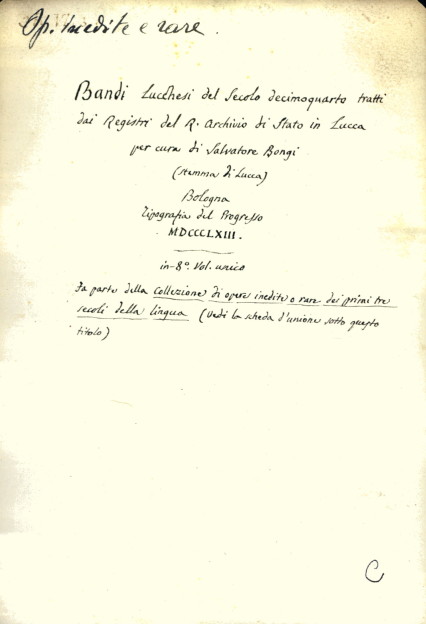 Op. Inedite e rare.
Bandi Lucchesi del Secolo decimoquarto tratti
dai Registri del R. Archivio di Stato in Lucca
per cura di Salvatore Bongi
(stemma di Lucca)
Bologna
Tipografia del Progresso
MDCCCLXIII.
in-8.º Vol. unico
Fa parte della Collezione di opere inedite o rare dei primi tre
secoli della lingua (Vedi la scheda d'unione sotto questo
titolo)
C